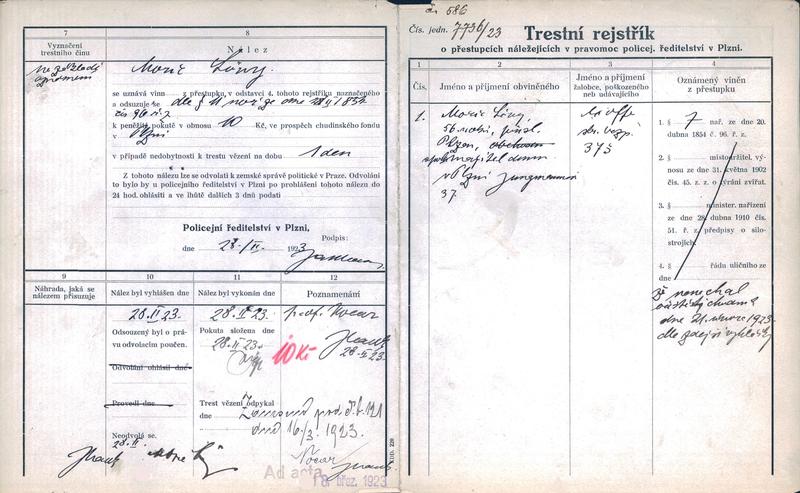 7
8
Vyznačení
trestního činu
Nález
na základě
oznámení
Moric Löwy
se uznává vinn z přestupku, v odstavci 4. tohoto rejstříku naznačeného
a odsuzuje se dle § 11 nař. ze dne
čís. 96 ř. z.
k peněžité pokutě v obnosu 10 Kč, ve prospěch chudinského fondu
v Plzni
v případě nedobytnosti k trestu vězení na dobu 1 den
Z tohoto nálezu lze se odvolati k zemské správě politické v Praze. Odvolání
to bylo by u policejního ředitelství v Plzni po prohlášení tohoto nálezu do
24 hod. ohlásiti a ve lhůtě dalších 3 dnů podati
Policejní ředitelství v Plzni,
dne 28./II. 1923
Podpis:
9
10
11
12
Náhrada, jaká se
nálezem přisuzuje
Nález byl vyhlášen dne
Nález byl vykonán dne
Poznamenání
28. II 23.
28. II 23.
Odsouzený byl o prá-
vu odvolacím poučen.
Pokuta složena dne
28. II 23.
10 Kč
28. II 23.
Odvolání ohlásil dne
Provedl dne
Trest vězení odpykal
dne
pod č. t. 121
dne 16/3. 1923.
Neodvolá se.
28. II.
Nocar
Ad acta
18. břez. 1923
KDD. 229
č. 586
Čís. jedn. 7736/23
Trestní rejstřík
o přestupcích náležejících v pravomoc policej. ředitelství v Plzni.
1
2
3
4
Čís.
Jméno a příjmení obviněného
Jméno a příjmení
žalobce, poškozeného
neb udávajícího
Oznámený viněn
z přestupku
1.
Moric Löwy,
56 roků, přísl.
Plzeň, obchodn
spolumajitel domu
v Plzni Jungmannova
37.
375
1. § 7 nař. ze dne 20.
dubna 1854 č. 96. ř. z.
2. § místodržitel, vý-
nosu ze dne 31. května 1902
čís. 45. z. z. o týrání zvířat.
3. § minister. nařízení
ze dne 28. dubna 1910 čís.
51. ř. z. předpisy o silo-
strojích.
4. § řádu uličního ze
dne
že nenechal
očistiti chodník
dne 21. února 1923
dle zdejší vyhlášky